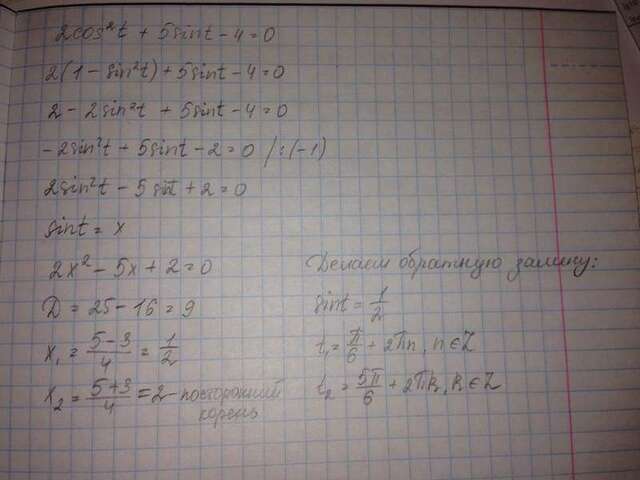 2cos²t + 5sint - 4 = 0
2(1 - sin²t) + 5sint - 4 = 0
2 - 2sin²t + 5sint - 4 = 0
-2sin²t + 5sint - 2 = 0 /:(-1)
2sin²t - 5sint + 2 = 0
sint = x
2x² - 5x + 2 = 0
D = 25 - 16 = 9
x₁ = (5-3)/4 = 1/2
x₂ = (5+3)/4 = 2 - посторонний
корень
Делаем обратную замену:
sint = 1/2
t₁ = π/6 + 2πn, n∈Z
t₂ = 5π/6 + 2πk, k∈Z